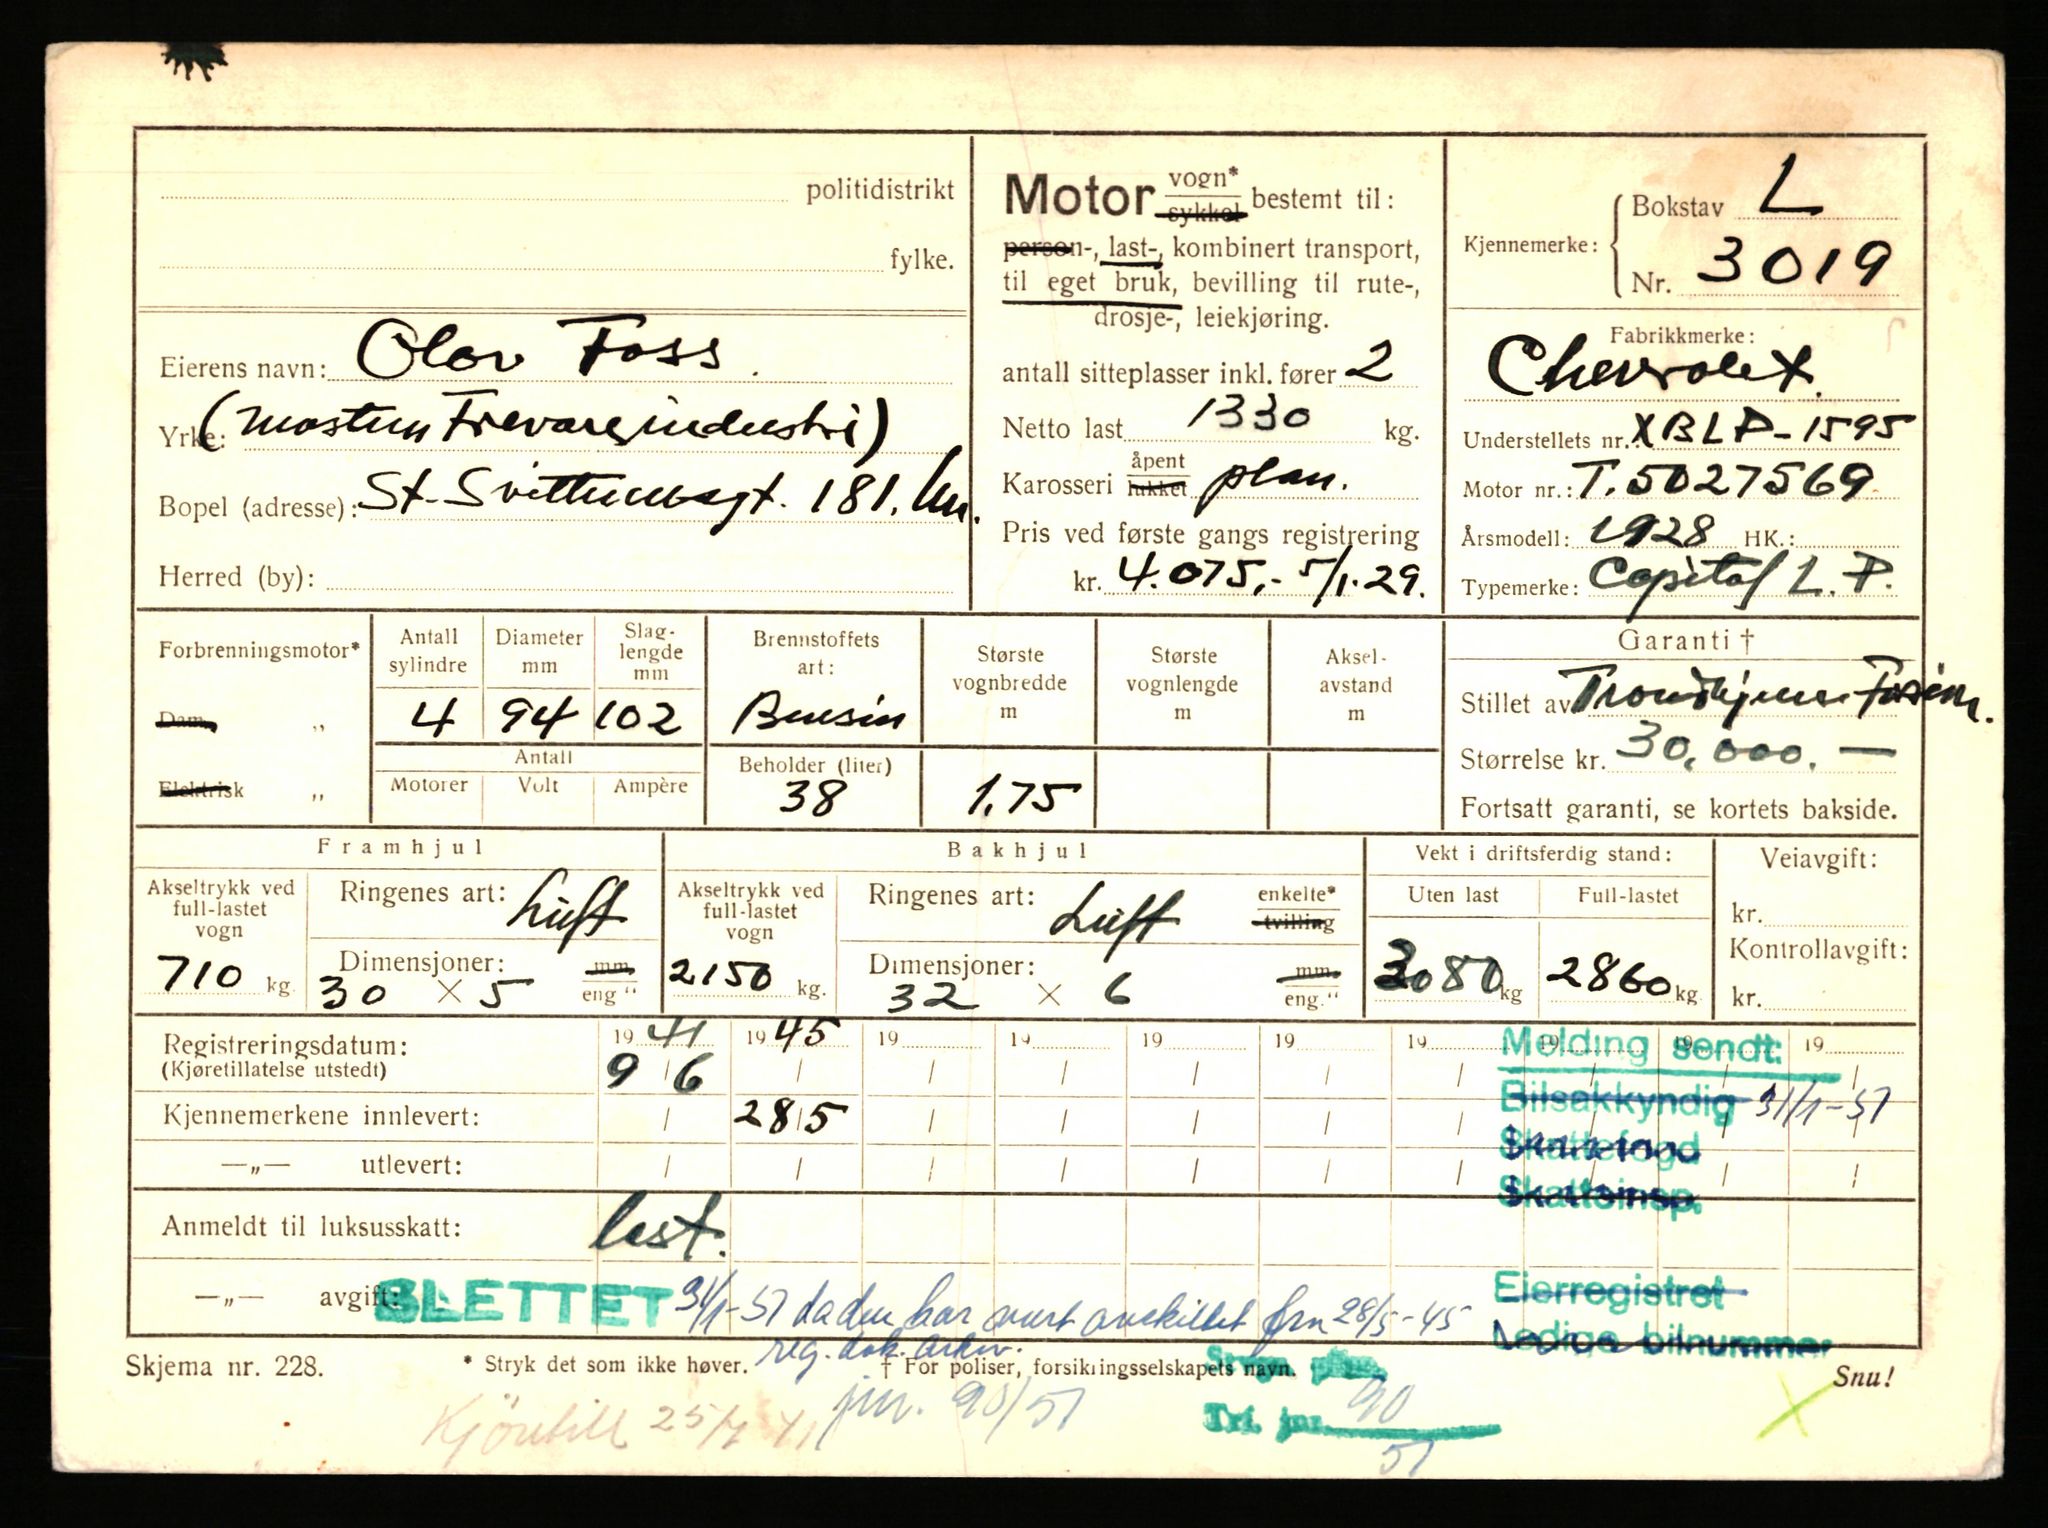 politidistrikt
fylke.
Eierens navn: Olav Foss.
Yrke: (Mostun Trevareindustri)
Bopel (adresse): St. Svithunsgt. 181.
Herred (by):
Motor vogn* sykkel bestemt til:
person-, last-, kombinert transport,
til eget bruk, bevilling til rute-,
drosje-, leiekjøring.
antall sitteplasser inkl. fører 2
Netto last 1330 kg.
Karosseri åpent lukket plan.
Pris ved første gangs registrering
kr. 4.075,- 5/1.29.
Kjennemerke: Bokstav L
Nr. 3019
Fabrikkmerke:
Chevrolet.
Understellets nr.: XBLP-1595
Motor nr.: T.5027569
Årsmodell: 1928 HK.:
Typemerke: Capitol L.P.
Forbrenningsmotor*
Dam „
Elektrisk „
Antall sylindre
4
Diameter mm
94
Slag-lengde mm
102
Antall
Motorer Volt Ampère
Brennstoffets art:
Bensin
Beholder (liter)
38
Største vognbredde m
1.75
Største vognlengde m
Aksel-avstand m
Garanti †
Stillet av Trondhjems
Størrelse kr. 30,000.—
Fortsatt garanti, se kortets bakside.
Framhjul
Akseltrykk ved full-lastet vogn
710 kg.
Ringenes art: Luft
Dimensjoner: mm
30 × 5 eng "
Bakhjul
Akseltrykk ved full-lastet vogn
2150 kg.
Ringenes art: Luft enkelte* tvilling
Dimensjoner: mm.
32 × 6 eng."
Vekt i driftsferdig stand:
Uten last Full-lastet
080 kg 2860 kg
Veiavgift:
kr.
Kontrollavgift:
kr.
Registreringsdatum: 19 41 19 45 19 19 19 19 19 19 19 19
(Kjøretillatelse utstedt) 9 / 6
Kjennemerkene innlevert: 28/5
—„— utlevert:
Anmeldt til luksusskatt: last.
—„— avgift:
SLETTET 31/1-51 da den har vært avskiltet frn 28/5-45
reg. dok. arkiv.
Melding sendt:
Bilsakkyndig 31/1-51
Skattefogd
Skatteinsp.
Eierregistret
Ledige bilnummer
Skjema nr. 228. * Stryk det som ikke høver. † For poliser, forsikringsselskapets navn. Snu!
jnr. 90/51
Tri. jnr. 90
51